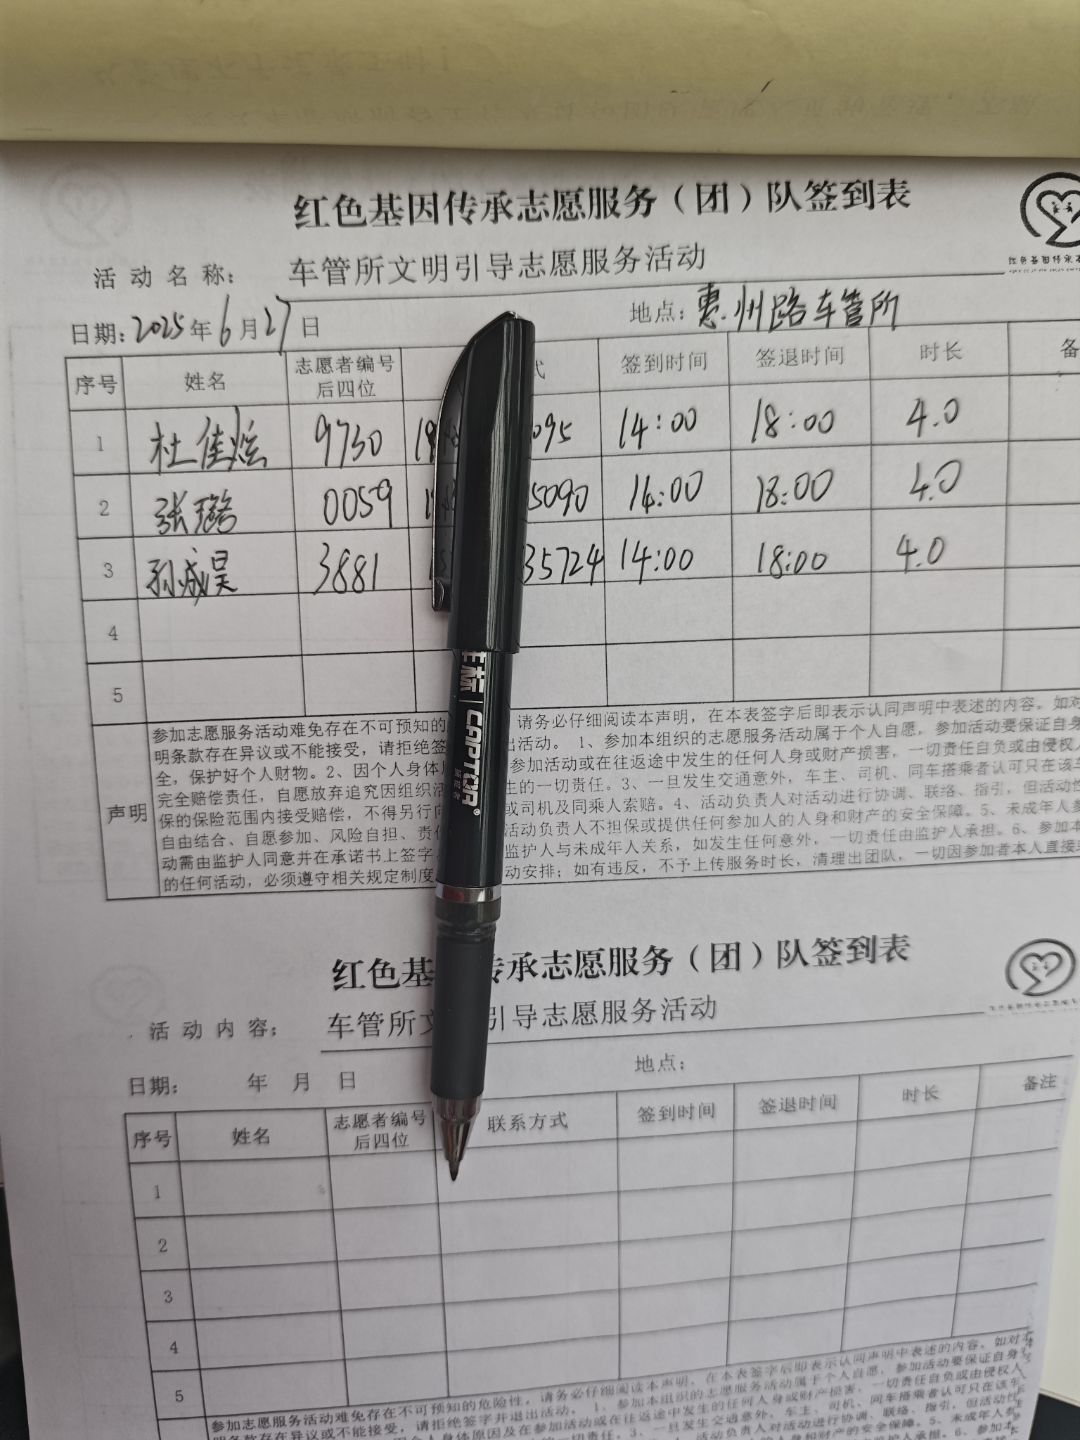 红色基因传承志愿服务（团）队签到表
活动名称： 车管所文明引导志愿服务活动
日期：2025年6月27日 地点：惠州路车管所
序号 姓名 志愿者编号后四位 式 签到时间 签退时间 时长 备
1 杜佳炫 9730 095 14:00 18:00 4.0
2 张璐 0059 5090 14:00 18:00 4.0
3 孙成昊 3881 35724 14:00 18:00 4.0
4
5
声明
参加志愿服务活动难免存在不可预知的 请务必仔细阅读本声明，在本表签字后即表示认同声明中表述的内容。如对
明条款存在异议或不能接受，请拒绝签 出活动。 1、参加本组织的志愿服务活动属于个人自愿，参加活动要保证自身
全，保护好个人财物。2、因个人身体 参加活动或在往返途中发生的任何人身或财产损害，一切责任自负或由侵权人
完全赔偿责任，自愿放弃追究因组织活 生的一切责任。3、一旦发生交通意外，车主、司机、同车搭乘者认可只在该车
保的保险范围内接受赔偿，不得另行向 或司机及同乘人索赔。4、活动负责人对活动进行协调、联络、指引，但活动性
自由结合、自愿参加、风险自担、责任 活动负责人不担保或提供任何参加人的人身和财产的安全保障。5、未成年人参
动需由监护人同意并在承诺书上签字， 监护人与未成年人关系，如发生任何意外，一切责任由监护人承担。6、参加本
的任何活动，必须遵守相关规定制度 动安排；如有违反，不予上传服务时长，清理出团队，一切因参加者本人直接
标 CAPTOR®
红色基 传承志愿服务（团）队签到表
活动内容： 车管所文 引导志愿服务活动
日期： 年 月 日 地点：
序号 姓名 志愿者编号后四位 联系方式 签到时间 签退时间 时长 备注
1
2
3
4
5
参加志愿服务活动难免存在不可预知的危险性，请务必仔细阅读本声明，在本表签字后即表示认同声明中表述的内容。如对
明条款存在异议或不能接受，请拒绝签字并退出活动。 1、参加本组织的志愿服务活动属于个人自愿，参加活动要保证自身
个人身体原因及在参加活动或在往返途中发生的任何人身或财产损害，一切责任自负或由侵权人
的一切责任。3、一旦发生交通意外，车主、司机、同车搭乘者认可只在该车
4、活动负责人对活动进行协调、联络、指引，但活动性
人身和财产的安全保障。5、未成年人参
监护人承担。6、参加本